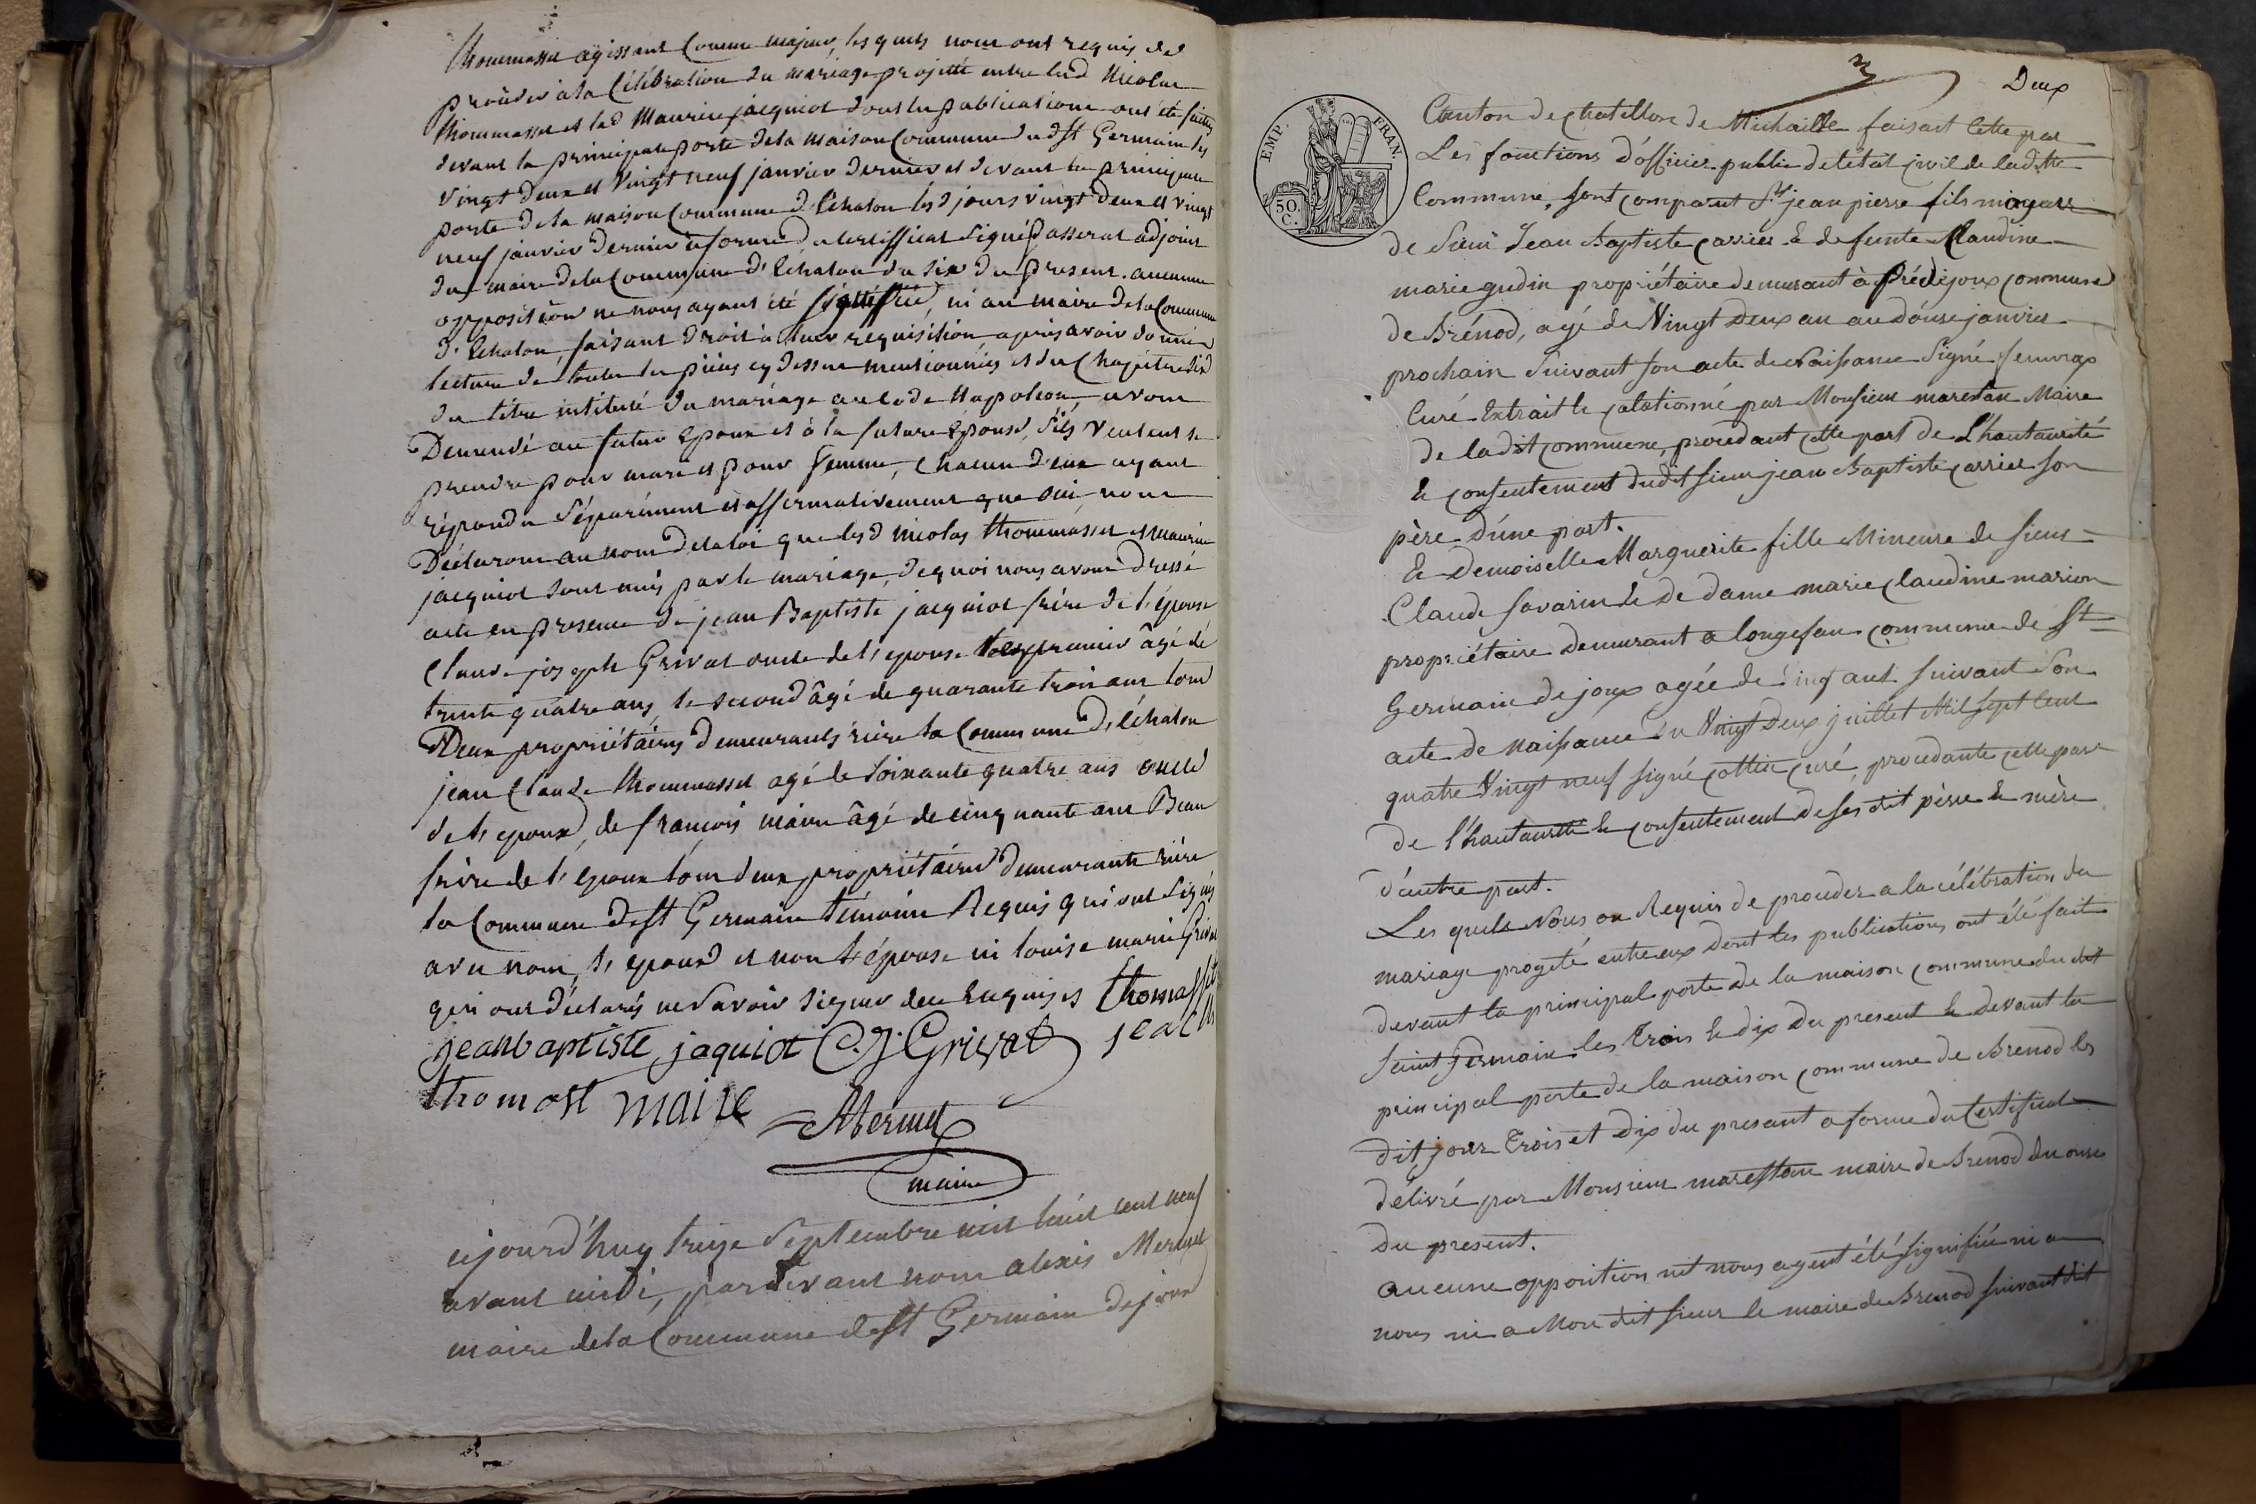 thommasset agissant comme majeur, les quels nous ont requis de
procéder à la Célébration du mariage projetté entre led Nicolas
thommasset et lad Maurice jacquiot dont les publications ont été faites
devant la principale porte de la maison Commune dud St Germain les
vingt deux et vingt neuf janvier dernier et devant la principale
porte de la maison Commune d'Echalon lesd jours vingt deux et vingt
neuf janvier dernier à forme du certifficat signé passerat adjoint
du maire de la Commune d'Echalon du six du présent. aucune
opposition ne nous ayant été signiffiée, ni au maire de la Commune
d'Echalon, faisant droit à leur requisition, après avoir donné
lecture de toutes les pièces cy dessus mentionnées et du Chapitre six
du titre intitulé du mariage au code Napoléon, avons
Demandé au futur Epoux et à la future Epouse, s'ils veulent se
prendre pour mari et pour femme, chacun d'eux ayant
répondu séparément et affirmativement que oui, nous
Déclarons au nom de la loi que lesd nicolas thommasset et maurice
jacquiot sont unis par le mariage, de quoi nous avons dressé
acte en présence de jean Baptiste jacquiot frère de l'épouse
Claude joseph Grivat oncle de l'epouse le premier âgé de
trente quatre ans, le second âgé de quarante trois ans tous
Deux propriétaires demeurants rière la Commune d'échalon
jean Claude thommasset agé de soixante quatre ans oncle
de l'epoux, de françois maire âgé de cinquante ans Beau
frère de l'epoux tous deux propriétaires demeurants rière
la Commune de St Germain témoins Requis qui ont signés
avec nous, l'epoux et non l'épouse ni louise marie Grivat
qui ont déclarés ne savoir signer de ce enquises thomasset
jeanbaptiste jaquiot C. J. Grivat jean
thomast maire Mermet
maire
ajourd'huy treize septembre mil huit cent neuf
avant midi, pardevant nous alexis Mermet
maire de la Commune de St Germain dejoux
Deux
EMP. FRAN.
50. C.
Canton de chatillon de Michaille faisant cette part
Les fonctions d'officier public de létat civil de ladite
Commune, sont comparut Sr jean pierre fils majeur
de Sieur Jean Baptiste carrier & defunte Claudine
marie gudin propriétaire demeurant à Prédejoux commune
de Brénod, agé de Vingt Deux an au douse janvier
prochain Suivant son acte de Naissance Signé
Curé Extrait le calationné par Monsieur marestan Maire
de ladit commune, procedant cette part de L'hautaurité
& consentement dudit sieur jean Baptiste carrier son
père d'une part.
& Demoiselle Marguerite fille Mineure de sieur
Claude savarin & de dame marie Claudine marion
propriétaire demeurant a longefan commune de St
Germain de joux agée de vingt ans suivant son
acte de naissance du Vingt Deux juillet Mil sept cent
quatre Vingt neuf signé cottin curé, procedante cette part
de l'hautaurité & consentement de ses dit père & mère
d'autre part.
Les quels Nous on Requis de proceder a la célébration du
mariage progeté entre eux dont les publications ont été fait
devant la principal porte de la maison commune du dit
Saint Germain les trois & dix du present & devant la
principal porte de la maison commune de Brenod les
dit jour Trois et dix du presant a forme du Certificat
délivré par Monsieur marestan maire de Brenod du onse
du present.
aucune opposition nit nous ayent été signifiée ni a
nous ni a Mon dit sieur le maire de Brenod suivant dit